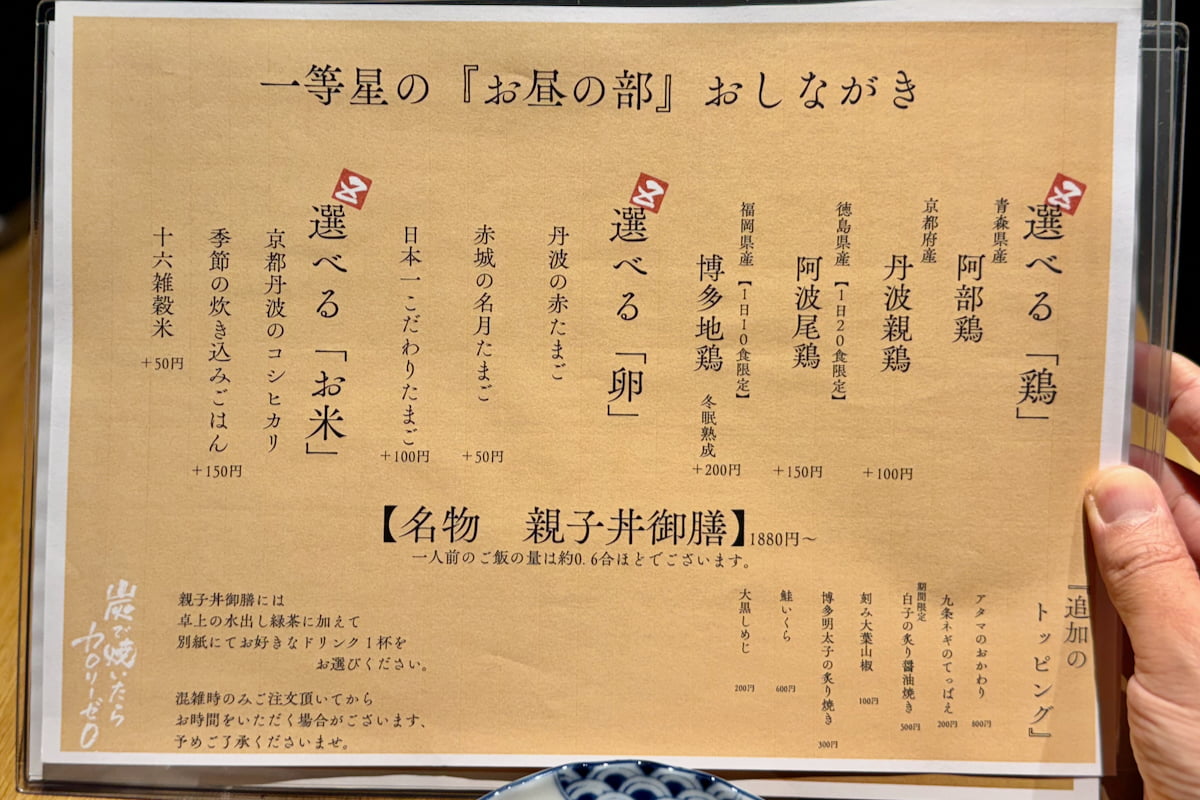 一等星の『お昼の部』おしながき
選べる「鶏」
青森県産
阿部鶏
京都府産
丹波親鶏
+100円
徳島県産【1日20食限定】
阿波尾鶏
+150円
福岡県産【1日10食限定】
博多地鶏 冬眠熟成
+200円
選べる「卵」
丹波の赤たまご
赤城の名月たまご
+50円
日本一こだわりたまご
+100円
選べる「お米」
京都丹波のコシヒカリ
季節の炊き込みごはん
+150円
十六雑穀米
+50円
【名物 親子丼御膳】1880円~
一人前のご飯の量は約0.6合ほどでございます。
『追加の
トッピング』
アタマのおかわり
800円
九条ネギのてっぱえ
200円
期間限定
白子の炙り醤油焼き
500円
刻み大葉山椒
100円
博多明太子の炙り焼き
300円
鮭いくら
600円
大黒しめじ
200円
親子丼御膳には
卓上の水出し緑茶に加えて
別紙にてお好きなドリンク1杯を
お選びください。
混雑時のみご注文頂いてから
お時間をいただく場合がございます、
予めご了承くださいませ。
炭で焼いたら
カロリーゼロ